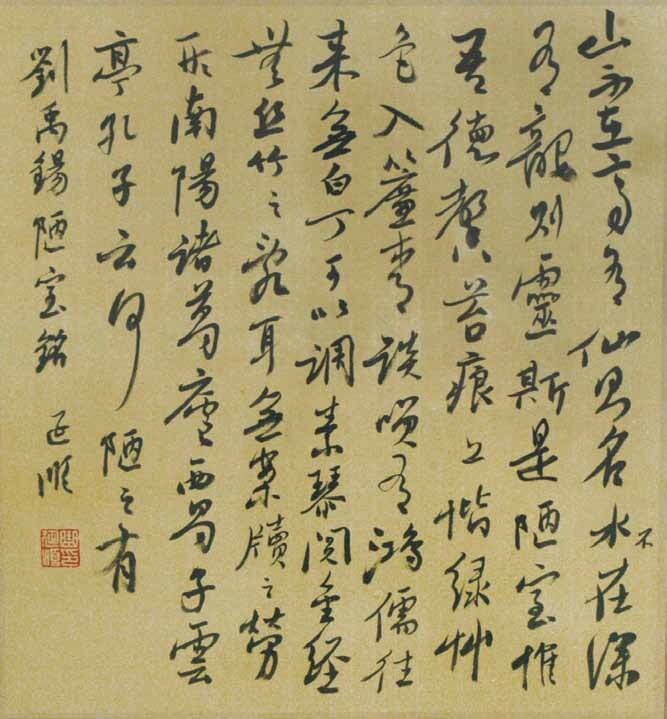 山不在高有仙則名水不在深
有龍則靈斯是陋室惟
吾德馨苔痕上階綠艸
色入簾青談笑有鴻儒往
来無白丁可以調素琴閱金經
無絲竹之亂耳無案牘之勞
形南陽諸葛廬西蜀子雲
亭孔子云何陋之有
劉禹錫陋室銘